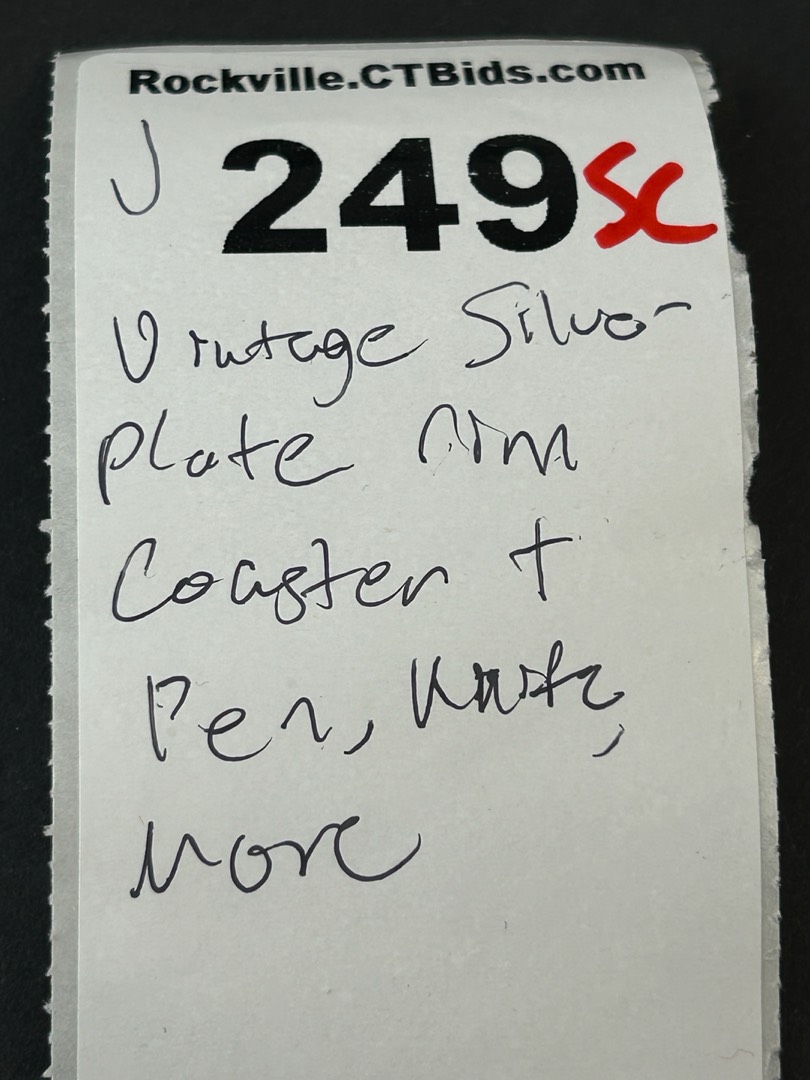 Rockville.CTBids.com
J 249 SC
Vintage Silver
plate rim
Coaster +
Pen, Knife,
More